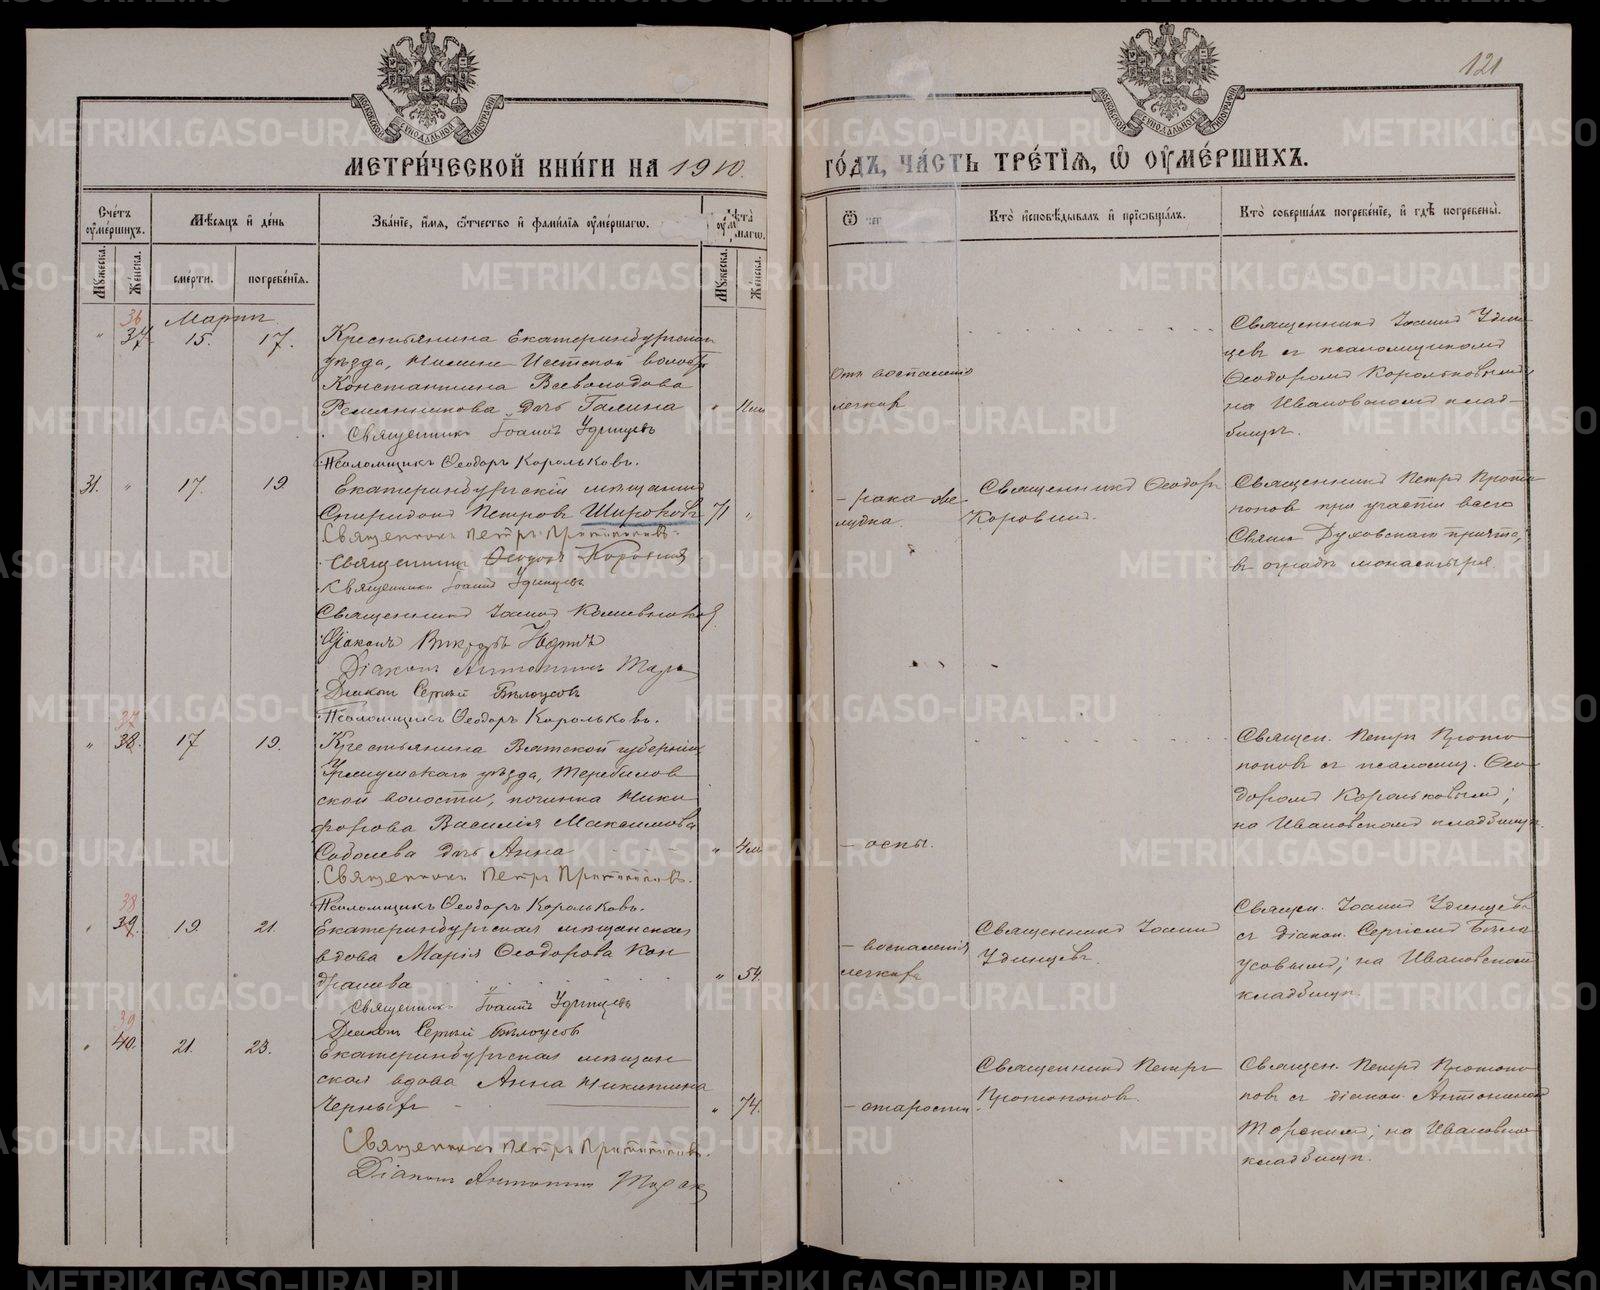 121
МЕТРИ́ЧЕСКОЙ КНИ́ГИ НА 1910.
ГО́ДЪ, ЧА́СТЬ ТРЕ́ТІѦ, Ѡ҆ ОУ҆МЕ́РШИХЪ.
Сче́тъ оу҆ме́ршихъ.
Мѣ́сяцъ и҆ де́нь
Зва́ніе, и҆́мя, ѻ҆́тчество и҆ фами́лія оу҆ме́ршагѡ.
Лѣ́та
Мꙋ́жеска.
Же́нска.
сме́рти.
погребе́нія.
Мꙋ́жеска.
Же́нска.
Кто̀ и҆сповѣ́дывалъ и҆ прїѡбща́лъ.
Кто̀ соверша́лъ погребе́ніе, и҆ гдѣ̀ погребены̀.
36
Мартъ
" 37. 15. 17.
Крестьянина Екатеринбургскаго
уѣзда, Нижне Исетской волости
Константина Всеволодова
Ремянникова дочь Галина
"
Священникъ Іоаннъ Удинцевъ
Псаломщикъ Ѳеодоръ Корольковъ.
Отъ воспаленія
легкихъ
Священникъ Іоаннъ Удин
цевъ съ псаломщикомъ
Ѳеодоромъ Корольковымъ
на Ивановскомъ клад-
бищѣ.
31. " 17. 19
Екатеринбургскій мѣщанинъ
Спиридонъ Петровъ Широковъ 71 "
Священникъ Петръ Протопоповъ.
Священникъ Ѳеодоръ Коровинъ
Священникъ Іоаннъ Удинцевъ
Священникъ Іоаннъ
Діаконъ Викторъ
Діаконъ Антонинъ
Діаконъ Сергій Бѣлоусовъ
Псаломщикъ Ѳеодоръ Корольковъ.
- рака же
лудка.
Священникъ Ѳеодоръ
Коровинъ.
Священникъ Петръ Прото
поповъ при участіи всего
Свято Духовскаго причта,
въ оградѣ монастыря
37
" 38. 17 19.
Крестьянина Вятской губерніи
Уржумскаго уѣзда, Теребилов
ской волости, починка Ники
форова Василія Максимова
Соболева дочь Анна
"
Священникъ Петръ Протопоповъ.
Псаломщикъ Ѳеодоръ Корольковъ.
- оспы.
Священ. Петръ Прото
поповъ съ псаломщ. Ѳео
доромъ Корольковымъ;
на Ивановскомъ кладбищѣ.
38
" 39. 19. 21.
Екатеринбургская мѣщанская
вдова Марія Ѳеодорова Кон
драшева
" 54.
Священникъ Іоаннъ Удинцевъ
Діаконъ Сергій Бѣлоусовъ
- воспаленія
легкихъ
Священникъ Іоаннъ
Удинцевъ.
Священ. Іоаннъ Удинцевъ
съ діакон. Сергіемъ Бѣло
усовымъ; на Ивановскомъ
кладбищѣ.
39
" 40. 21. 23.
Екатеринбургская мѣщан
ская вдова Анна Никитина
Черныхъ
" 74.
Священникъ Петръ Протопоповъ.
Діаконъ Антонинъ
- старости
Священникъ Петръ
Протопоповъ.
Священ. Петръ Протопо
повъ съ діакон. Антониномъ
на Ивановск
кладбищѣ.
METRIKI.GASO-URAL.RU